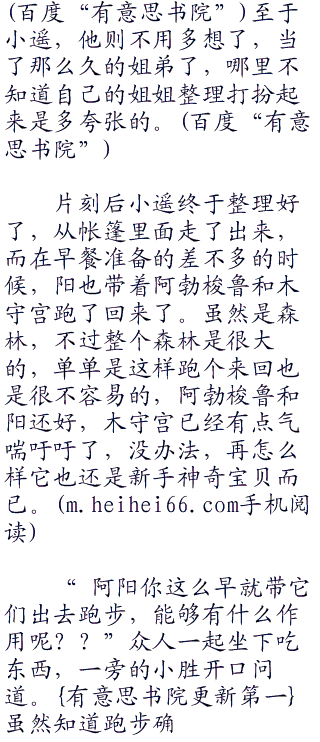 (百度“有意思书院”)至于
小遥，他则不用多想了，当
了那么久的姐弟了，哪里不
知道自己的姐姐整理打扮起
来是多夸张的。(百度“有意
思书院”)
片刻后小遥终于整理好
了，从帐篷里面走了出来，
而在早餐准备的差不多的时
候，阳也带着阿勃梭鲁和木
守宫跑了回来了。虽然是森
林，不过整个森林是很大
的，单单是这样跑个来回也
是很不容易的，阿勃梭鲁和
阳还好，木守宫已经有点气
喘吁吁了，没办法，再怎么
样它也还是新手神奇宝贝而
已。(m.heihei66.com手机阅
读)
“ 阿阳你这么早就带它
们出去跑步，能够有什么作
用呢？？”众人一起坐下吃
东西，一旁的小胜开口问
道。{有意思书院更新第一}
虽然知道跑步确